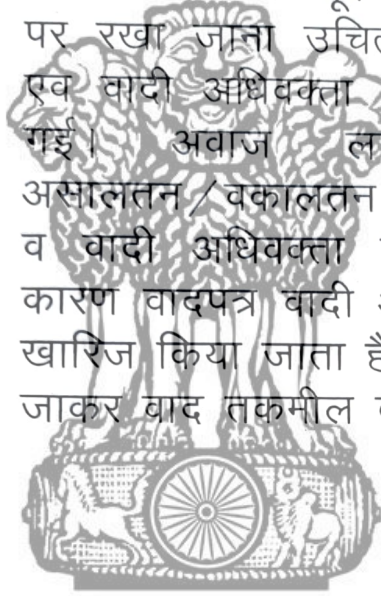 पर रखा जाना उचित
एव वादी अधिवक्ता
गई। अवाज ल
असालतन/वकालतन
व वादी अधिवक्ता
कारण वादपत्र वादी
खारिज किया जाता है
जाकर वाद तकमील